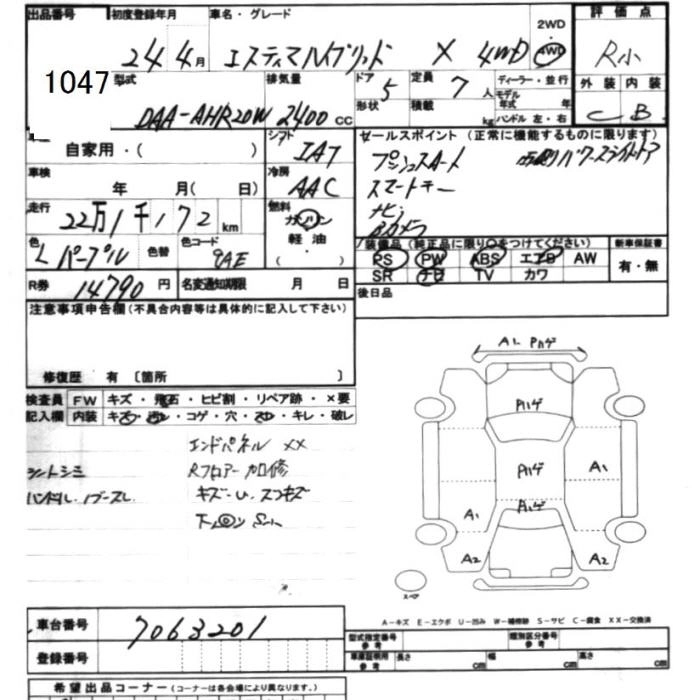 出品番号 初度登録年月 車名・グレード 2WD 4WD 評価点
1047 24年4月 エスティマハイブリッド X 4WD R小
型式 排気量 ドア 定員 ディーラー・並行 外装 内装
DAA-AHR20W 2400 cc 5 7人 モデル年式 年 C B
形状 積載 kg ハンドル 左・右
自家用・( ) シフト IAT セールスポイント (正常に機能するものに限ります)
車検 年 月( 日) 冷房 AAC プッシュスタート 両側パワースライドドア
スマートキー
走行 22万1千172km 燃料 ガソリン 軽油・( ) ナビ
Bカメラ
色 L パープル 色替 色コード 9AE 装備品(純正品に限り○をつけてください) 新車保証書
PS PW ABS エアB AW 有・無
SR ナビ TV カワ
R券 14790円 名変通知期限 月 日 後日品
注意事項申告欄(不具合内容等は具体的に記入して下さい)
修復歴 有 〔箇所 〕
検査員 FW キズ・飛石・ヒビ割・リペア跡・×要
記入欄 内装 キズ・汚レ・コゲ・穴・スレ・キレ・破レ
エンドパネル XX
シートシミ Rフロアー加修
キズ・U、スリキズ
A1 Pハゲ
Pハゲ
Pハゲ A1
Pハゲ
A1
A2 A2
スペア
A-キズ E-エクボ U-凹み W-補修跡 S-サビ C-腐食 XX-交換済
車台番号 7063201
型式指定番号 参考 類別区分番号 参考
登録番号 車庫証明用 参考 長さ cm 幅 cm 高さ cm
希望出品コーナー(コーナーは各会場により異なります。)